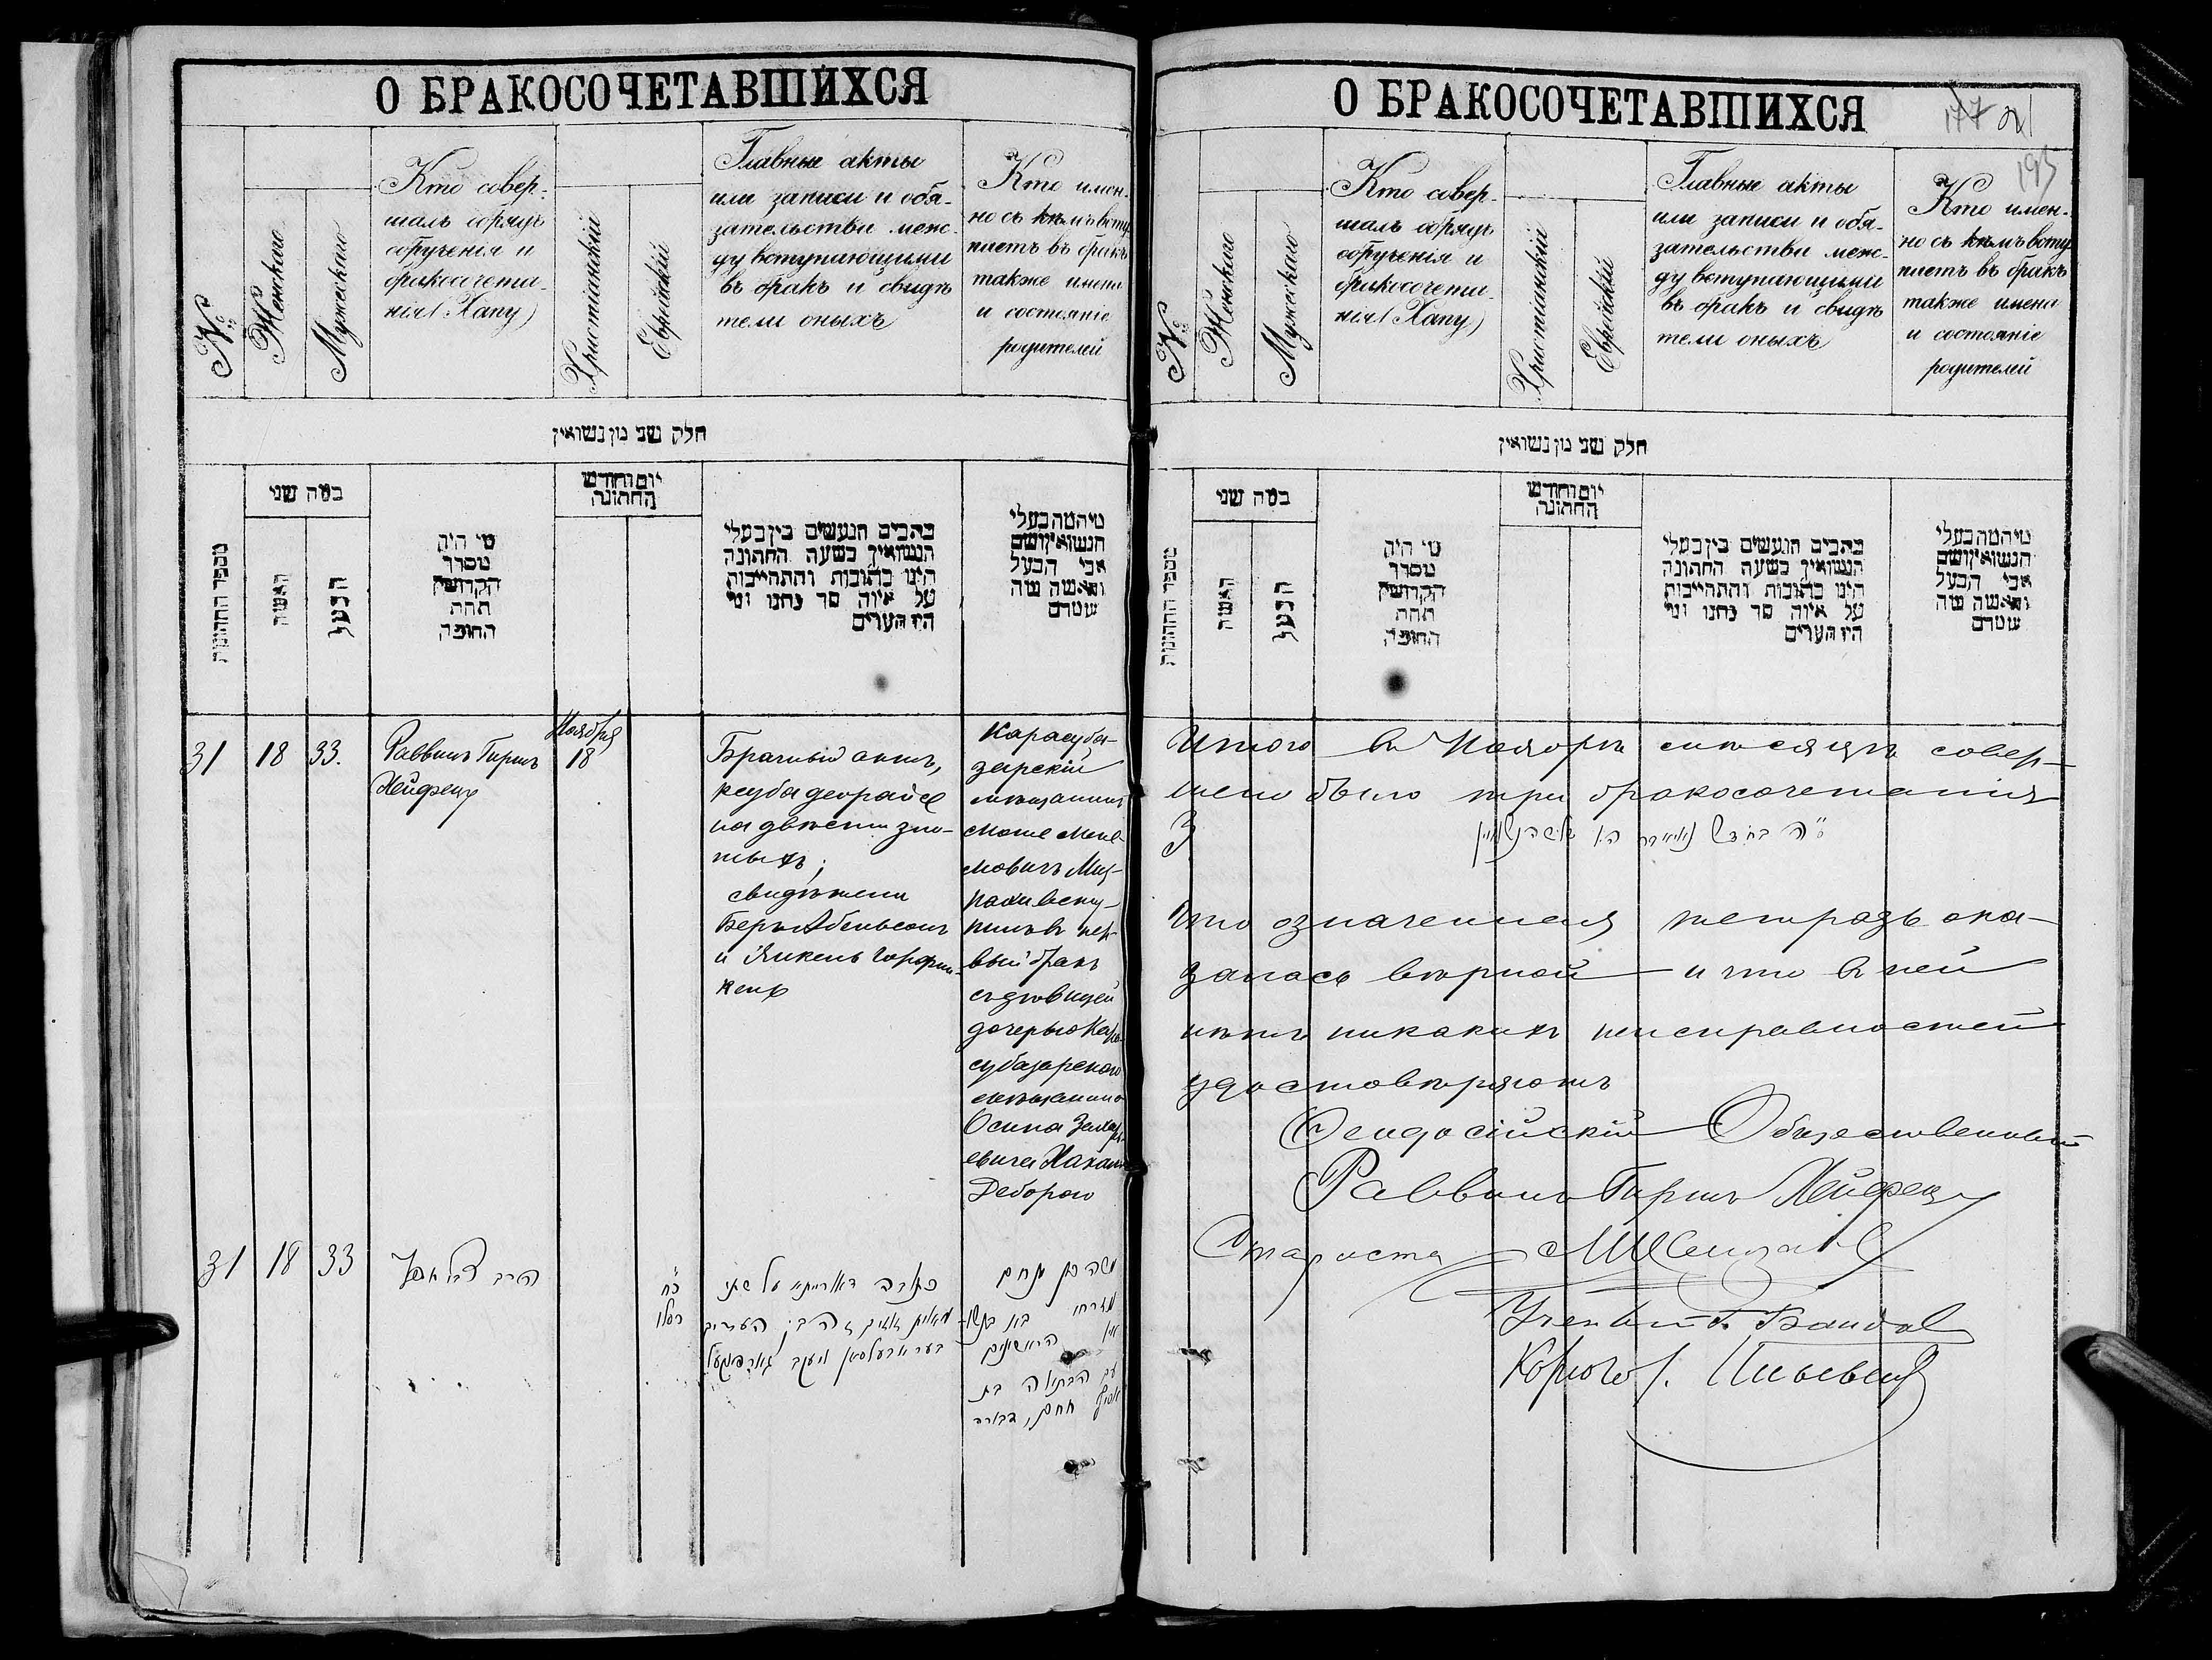 О БРАКОСОЧЕТАВШИХСЯ
№
Женскаго
Мужескаго
Кто совер-
шалъ обрядъ
обрученія и
бракосочета-
нія (Хапу)
Христіанскій
Еврейскій
Главные акты
или записи и обя-
зательства меж-
ду вступающими
въ бракъ и свидѣ
тели оныхъ
Кто имен-
но съ кѣмъ всту
паетъ въ бракъ
также имена
и состояніе
родителей
חלק שני מן נשואין
מספר החתונות
כמה שני
האשה
הבעל
מי היה
מסדר
הקדושין
תחת
החופה
יום וחודש
החתונה
כתבים הנעשים בין בעלי
הנשואין בשעה החתונה
היינו כתובות והתחייבות
על איזה סך נתנו ומי
היו העדים
בעלי
הנשואין ושם
אבי הבעל
והאשה
31
18
33.
Раввинъ Гиршъ
Хейфецъ
Ноября
18
Брачный актъ,
ксуба деорайсе
на двѣсти зло-
тыхъ;
свидѣтели
Беръ Абельсонъ
и Янкель Горфин-
кель
Карасуба-
зарскій
мѣщанинъ
Моше Мена-
мовичъ Миз-
рахи всту-
пилъ въ пер-
вый бракъ
съ дѣвицей
дочерью Кара-
субазарскаго
мѣщанина
Осипа Захарь-
евича Хахам
Деборою
31
18
33
הרב
כ"ח
כסלו
כתובה דאורייתא על שתי
מאות העדים
בער אבעלסאן יעקב גארפינקעל
משה בן נחם
מזרחי
הראשונים
עם הבתולה בת
יוסף חחם, דבורה
О БРАКОСОЧЕТАВШИХСЯ
177
21
195
№
Женскаго
Мужескаго
Кто совер-
шалъ обрядъ
обрученія и
бракосочета-
нія (Хапу)
Христіанскій
Еврейскій
Главные акты
или записи и обя-
зательства меж-
ду вступающими
въ бракъ и свидѣ
тели оныхъ
Кто имен-
но съ кѣмъ всту
паетъ въ бракъ
также имена
и состояніе
родителей
חלק שני מן נשואין
מספר החתונות
כמה שני
האשה
הבעל
מי היה
מסדר
הקדושין
תחת
החופה
יום וחודש
החתונה
כתבים הנעשים בין בעלי
הנשואין בשעה החתונה
היינו כתובות והתחייבות
על איזה סך נתנו ומי
היו העדים
בעלי
הנשואין ושם
אבי הבעל
והאשה
Итого въ Ноябрѣ мѣсяцѣ совер-
шено было три бракосочетанія
3
ס"ה בחודש
Что означенная тетрадь ока-
залась вѣрной и что въ ней
нѣтъ никакихъ неисправностей
удостовѣряютъ
Ѳеодосійскій Общественный
Раввинъ Гиршъ Хейфецъ
Староста